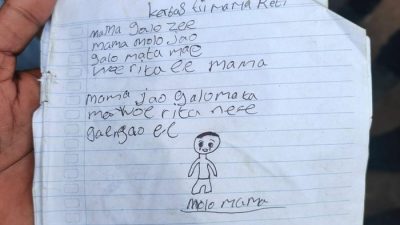 kertas si mama Reti
mama galo zee
mama molo jao
galo mata mae
woe rita ee mama
mama jao galo mata
ma woe rita nese
ee
molo mama